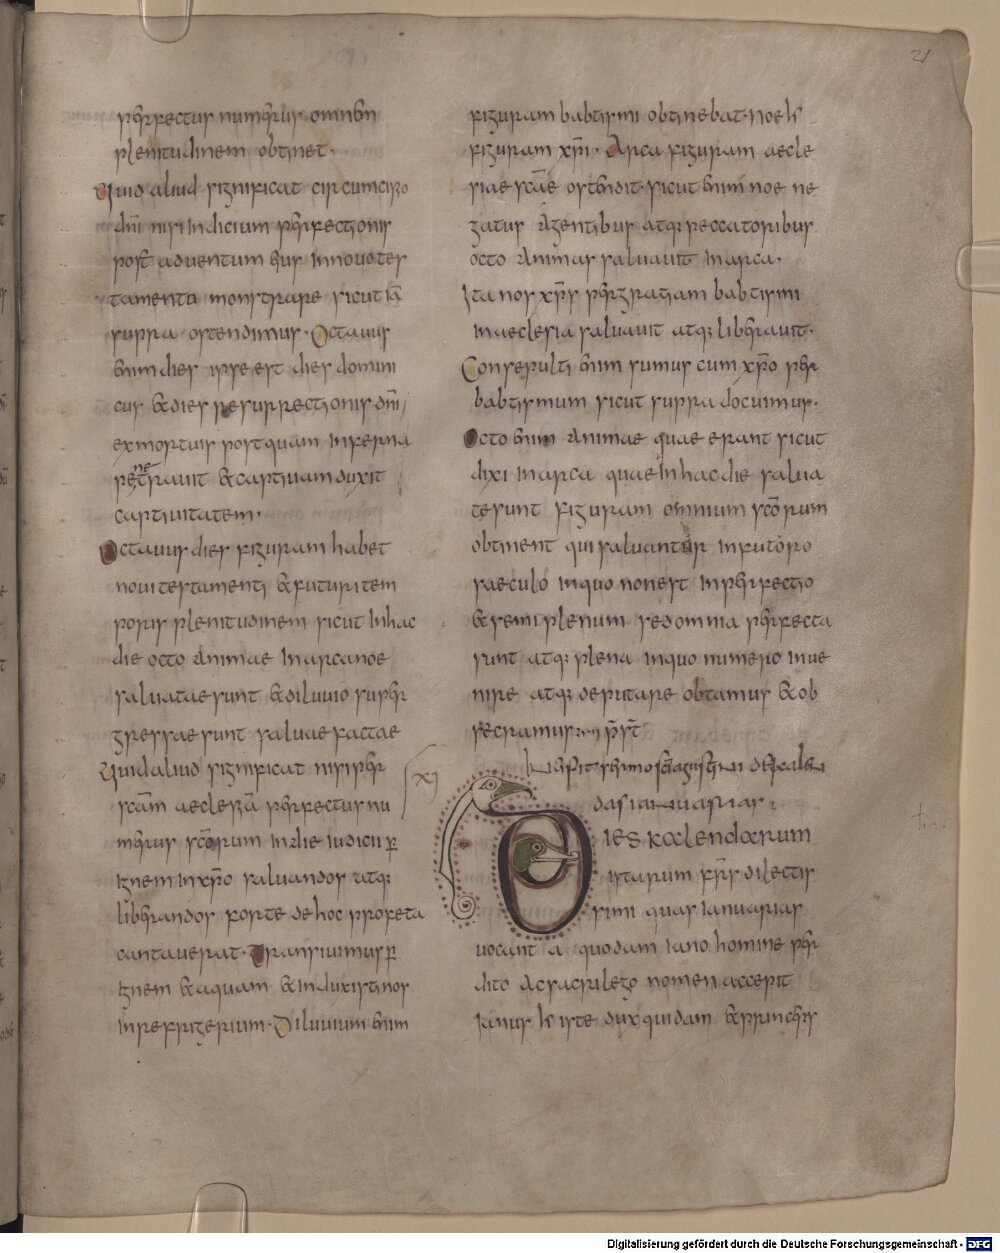 21
perfectus numerus omnem
plenitudinem obtinet.
Quid aliud significat circumcisio
dnī nisi indicium perfectionis
post aduentum eius in nouo tes
tamento monstrare sicut iā
supra ostendimus. Octauus
enim dies ipse est dies domini
cus & dies resurrectionis dnī
ex mortuis postquam inferna
penetrauit & captiuam duxit
captiuitatem.
Octauus dies figuram habet
noui testamenti & futuri tem
poris plenitudinem sicut in hac
die octo animae in arca noe
saluatae sunt & diluuio super
gressae sunt saluae factae
Quid aliud significat nisi per
scām aeclesiā perfectus nu
merus scōrum in die iudicii ꝑ
ignem in xp̄o saluandos atq:
liberandos forte de hoc profeta
cantauerat. Transiuimus ꝑ
ignem & aquam & induxisti nos
in refrigerium. Diluuium enim
figuram babtismi obtinebat. noe
figuram xp̄i. Arca figuram aecle
siae scāe ostendit. sicut enim noe ne
gatus a gentibus atq: peccatoribus
octo animas saluauit in arca.
Ita nos xp̄s per gratiam babtismi
in aeclesia saluauit atq: liberauit.
Consepulti enim sumus cum xp̄o per
babtismum sicut supra docuimus.
Octo enim animae quae erant sicut
dixi in arca quae in hac die salua
te sunt figuram omnium scōrum
obtinent qui saluantur in futuro
saeculo in quo non est inperfectio
& semiplenum sed omnia perfecta
sunt atq: plena in quo numero inue
nire atq: deputare obtamus & ob
secramus
xi
Incipit sermo sci agustini de kalen
das ianuarias
Dies kalendarum
istarum frs̄ dilectis
simi quas ianuarias
uocant a quodam iano homine per
dito ac sacrilego nomen accepit
ianus iste dux quidam & princeps
Digitalisierung gefördert durch die Deutsche Forschungsgemeinschaft - DFG